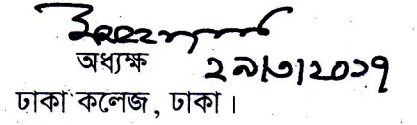 অধ্যক্ষ ২৯/৩/২০১৭
ঢাকা কলেজ, ঢাকা।